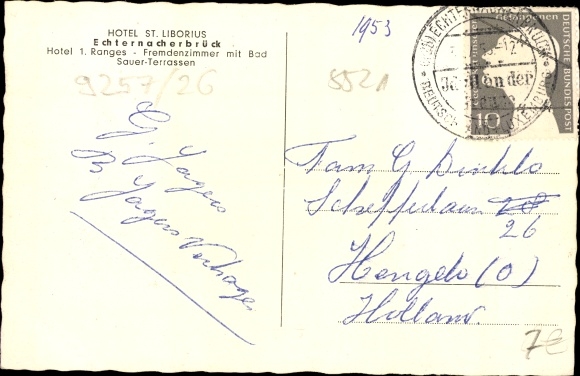 HOTEL ST. LIBORIUS
Echternacherbrück
Hotel 1. Ranges - Fremdenzimmer mit Bad
Sauer-Terrassen
1953
9257/26
5521
Gefangenen
DEUTSCHE BUNDESPOST
10
G. Jagers
B Jagers Verhagen
Fam G
26
Hengelo (O)
Holland.
7€